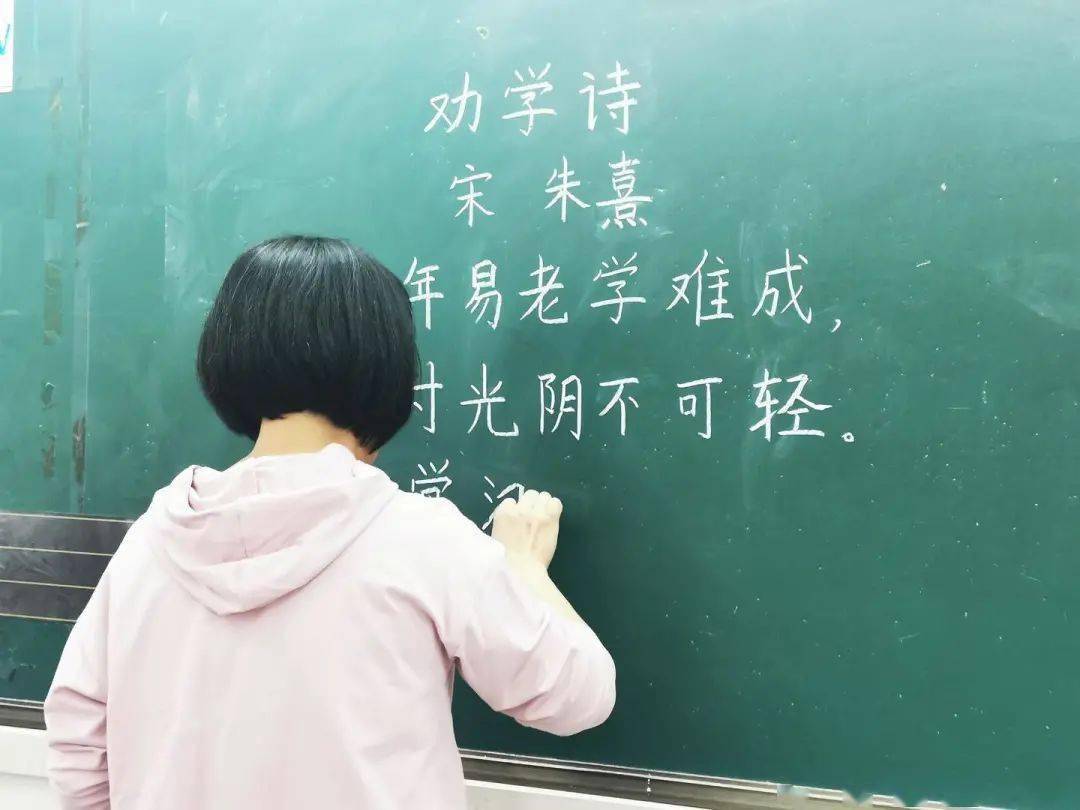 劝学诗
宋 朱熹
年易老学难成,
寸光阴不可轻。
觉